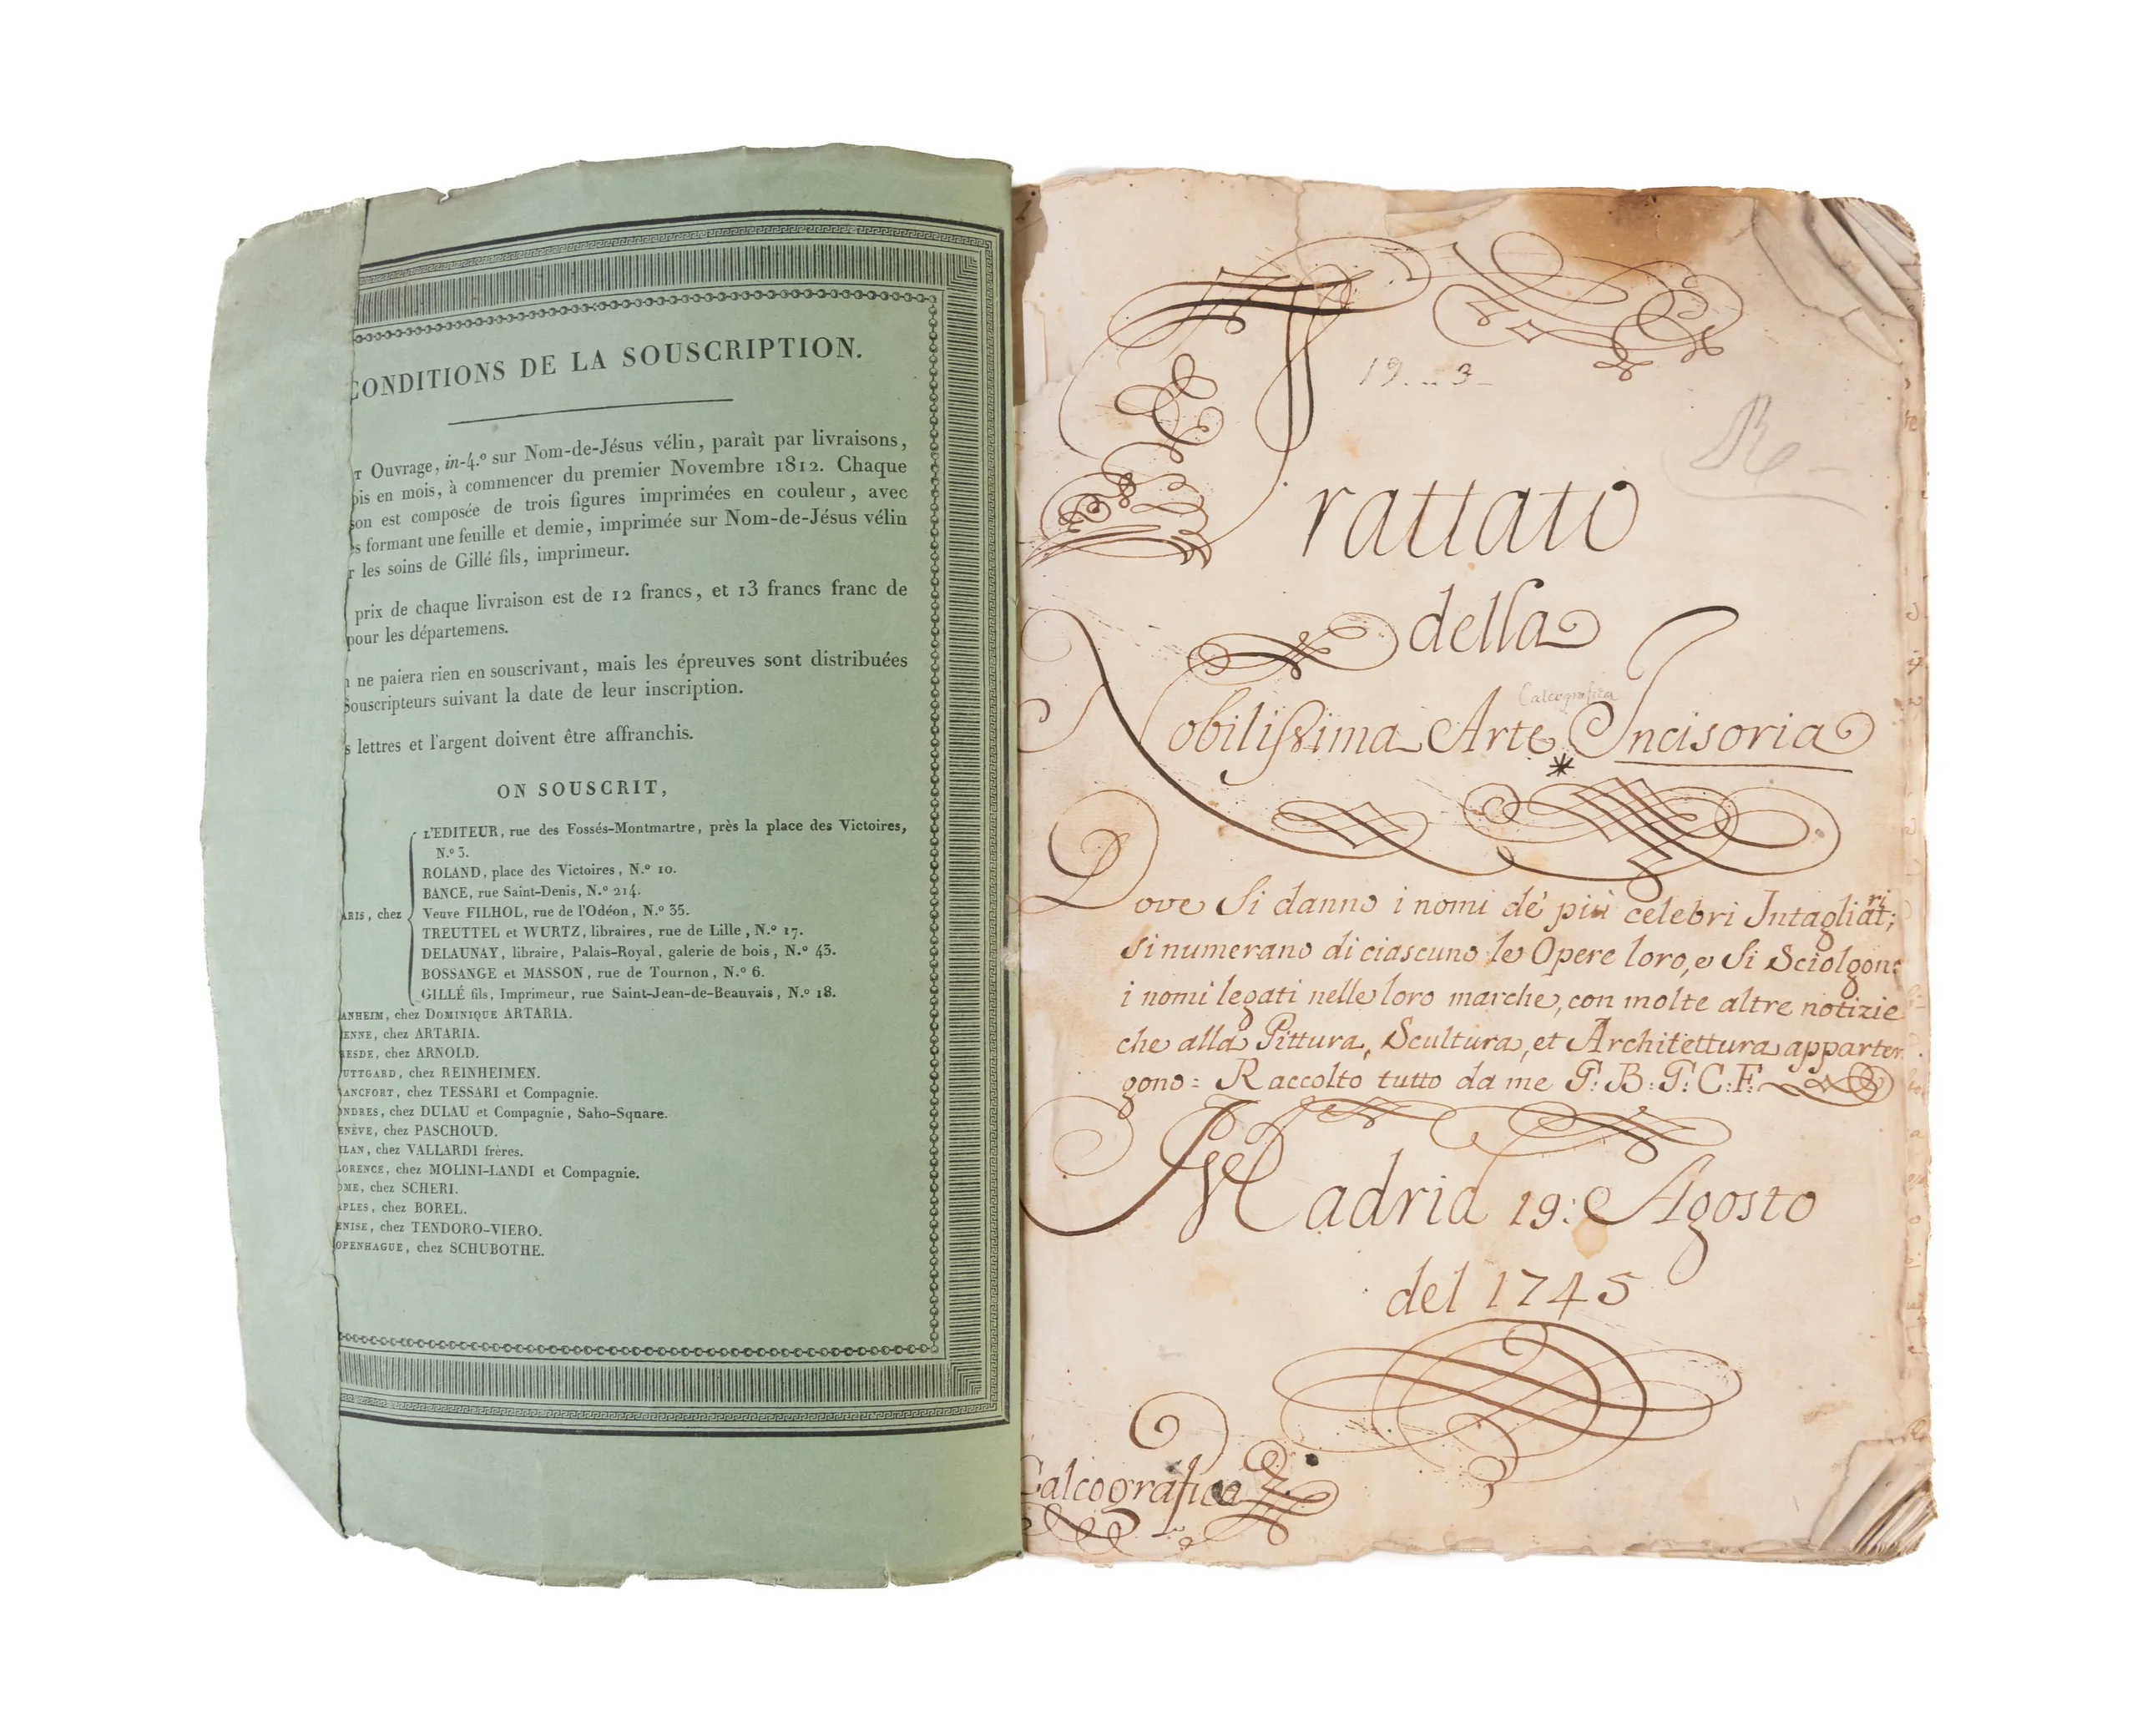 CONDITIONS DE LA SOUSCRIPTION.
T Ouvrage, in-4.º sur Nom-de-Jésus vélin, paraît par livraisons,
ois en mois, à commencer du premier Novembre 1812. Chaque
son est composée de trois figures imprimées en couleur, avec
s formant une feuille et demie, imprimée sur Nom-de-Jésus vélin
r les soins de Gillé fils, imprimeur.
prix de chaque livraison est de 12 francs, et 13 francs franc de
pour les départemens.
ne paiera rien en souscrivant, mais les épreuves sont distribuées
Souscripteurs suivant la date de leur inscription.
s lettres et l'argent doivent être affranchis.
ON SOUSCRIT,
L'EDITEUR, rue des Fossés-Montmartre, près la place des Victoires,
N.º 3.
ROLAND, place des Victoires, N.º 10.
BANCE, rue Saint-Denis, N.º 214.
ARIS, chez Veuve FILHOL, rue de l'Odéon, N.º 35.
TREUTTEL et WURTZ, libraires, rue de Lille, N.º 17.
DELAUNAY, libraire, Palais-Royal, galerie de bois, N.º 43.
BOSSANGE et MASSON, rue de Tournon, N.º 6.
GILLÉ fils, Imprimeur, rue Saint-Jean-de-Beauvais, N.º 18.
ANHEIM, chez DOMINIQUE ARTARIA.
IENNE, chez ARTARIA.
RESDE, chez ARNOLD.
UTTGARD, chez REINHEIMEN.
RANCFORT, chez TESSARI et Compagnie.
ONDRES, chez DULAU et Compagnie, Saho-Square.
ENÈVE, chez PASCHOUD.
ILAN, chez VALLARDI frères.
LORENCE, chez MOLINI-LANDI et Compagnie.
OME, chez SCHERI.
APLES, chez BOREL.
ENISE, chez TENDORO-VIERO.
OPENHAGUE, chez SCHUBOTHE.
19. .. 3-
Trattato
della
Calcografica
Nobilissima Arte Incisoria
*
Dove si danno i nomi de' più celebri Intagliatri;
si numerano di ciascuno le Opere loro, e si Sciolgono
i nomi legati nelle loro marche, con molte altre notizie
che alla Pittura, Scultura, et Architettura apparten
gono = Raccolto tutto da me G: B: G: C: F:
Madrid 19: Agosto
del 1745
Calcografica